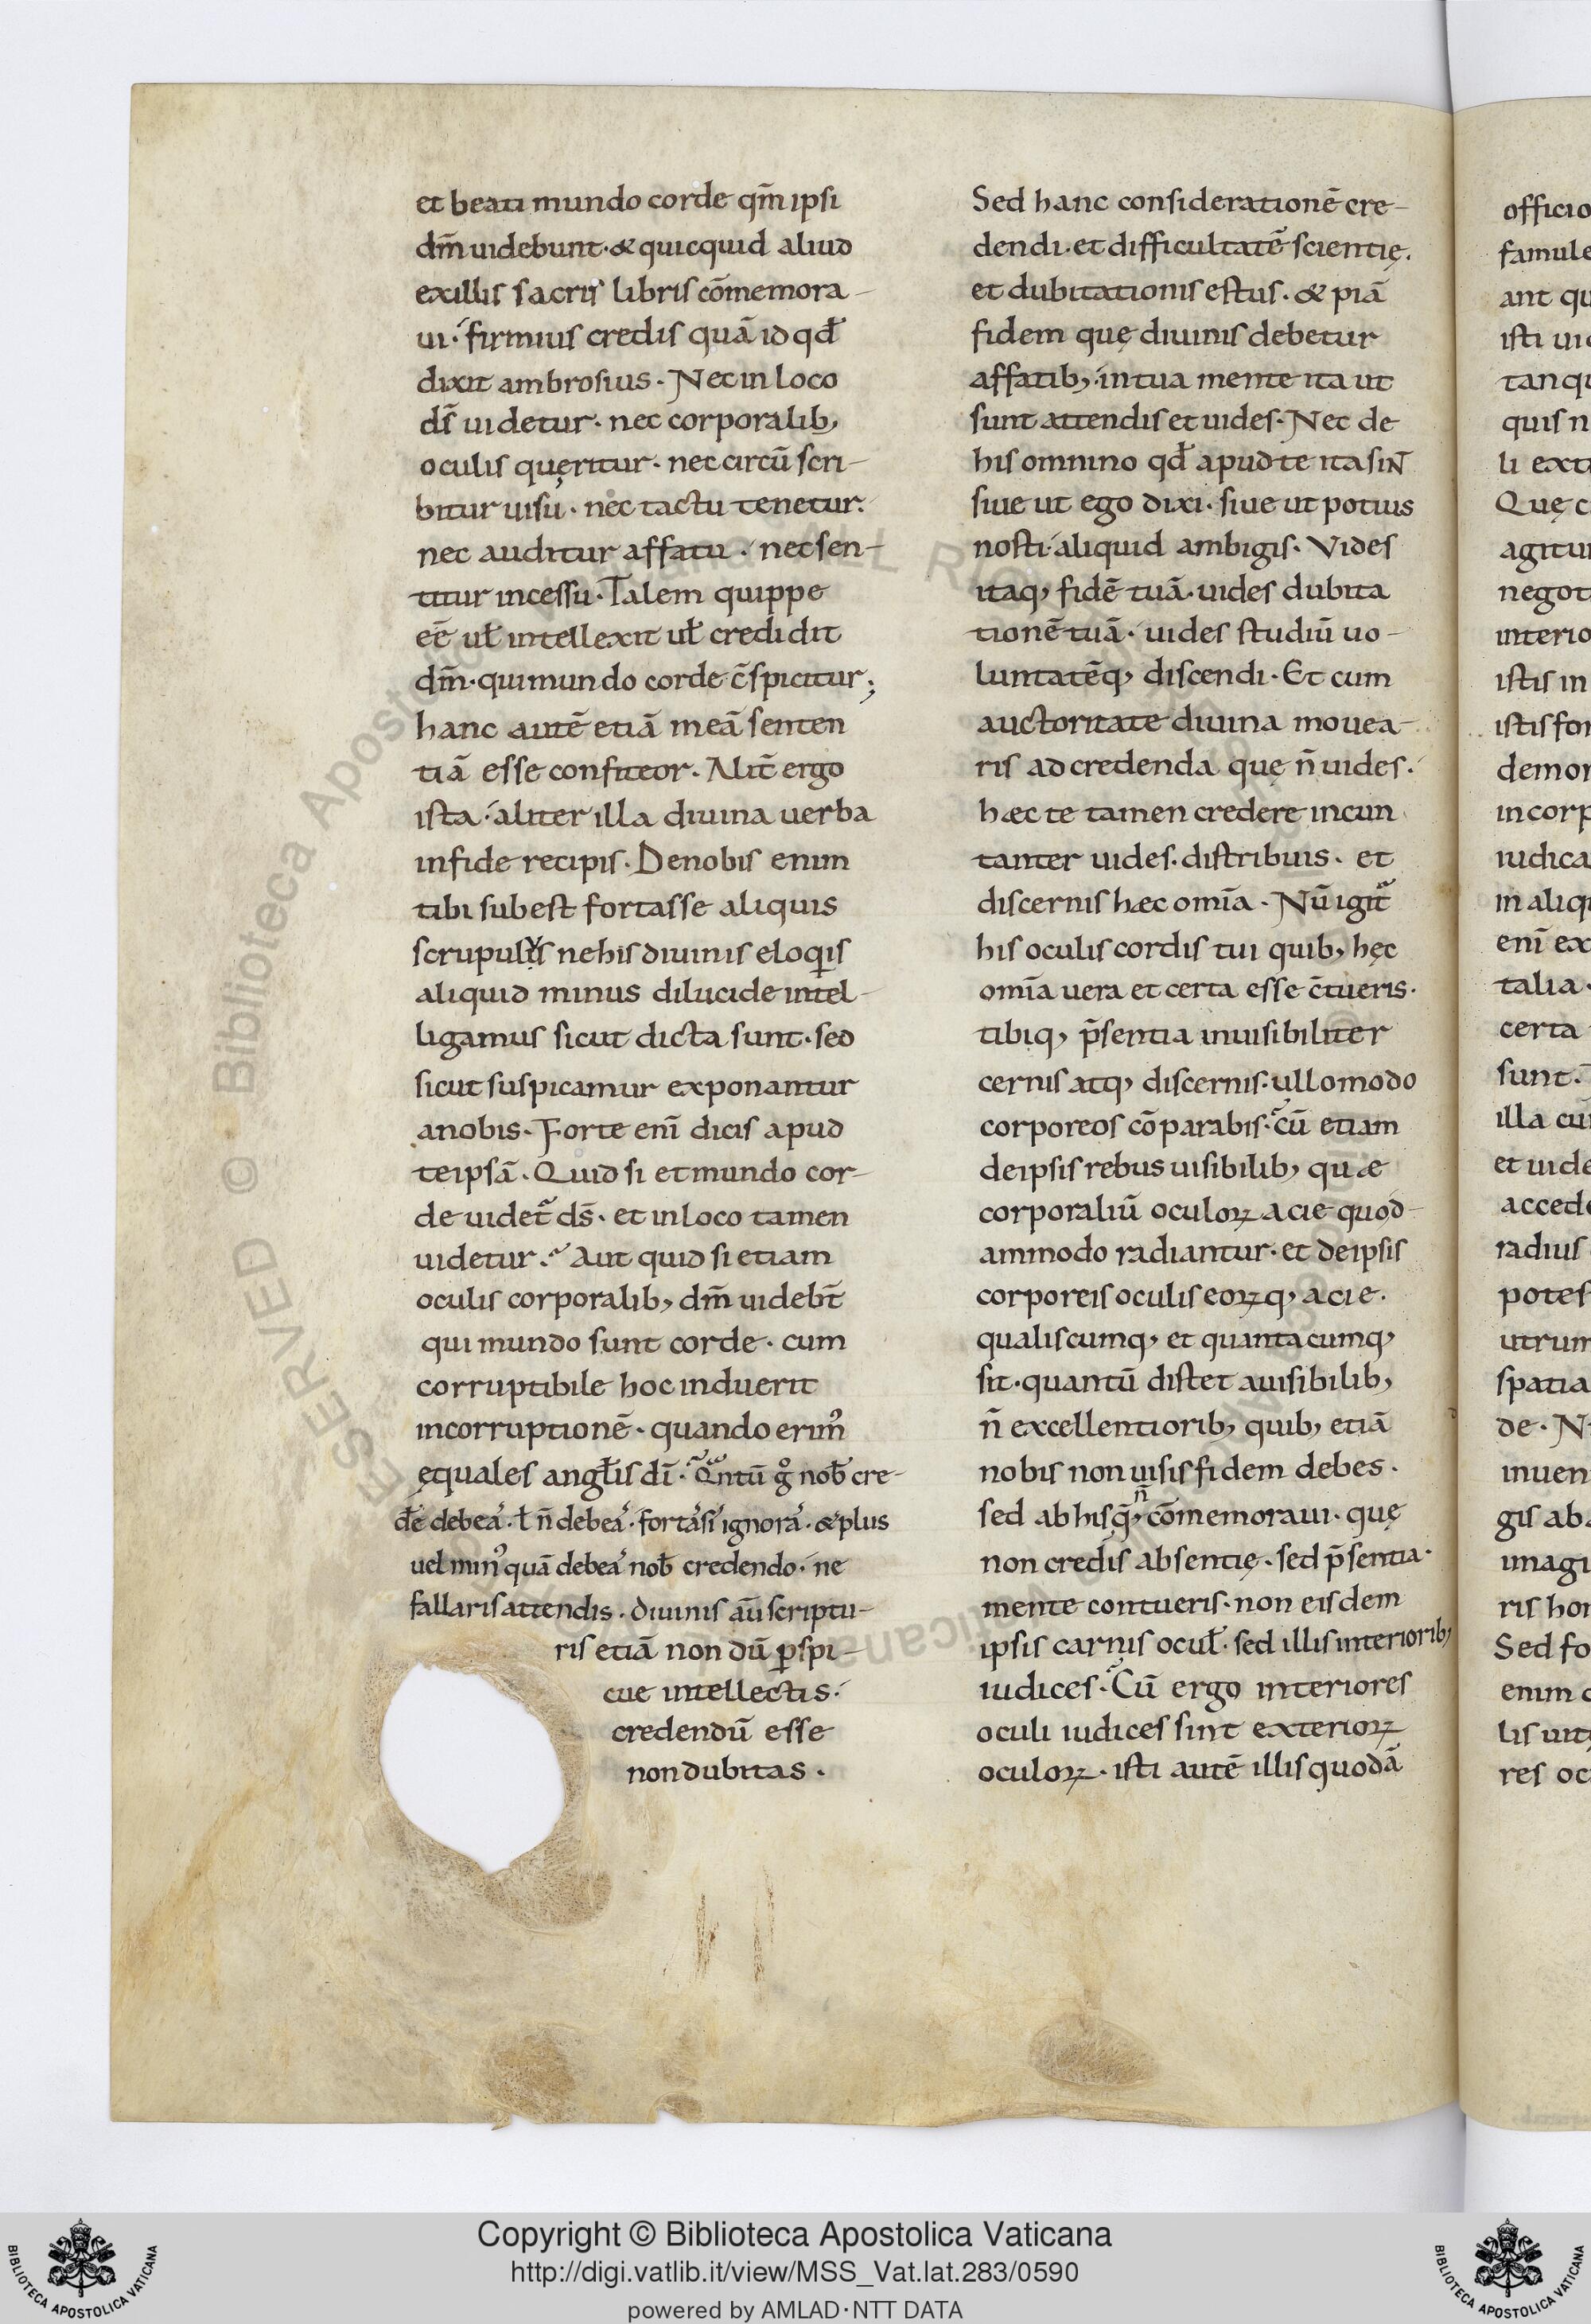 et beati mundo corde qm̄ ipsi
dm̄ uidebunt·& quicquid aliud
exillis sacris libris cōmemora-
ui· firmius credis quā id qđ
dixit ambrosius· Nec in loco
ds̄ uidetur· nec corporalib;
oculis quęritur· nec circū scri-
bitur uisu· nec tactu tenetur·
nec auditur affatu· nec sen-
titur incessu· Talem quippe
eē uł intellexit uł credidit
dm̄· qui mundo corde c̄spicitur;
hanc autē etiā meā senten
tiā esse confiteor· Alit̄ ergo
ista· aliter illa diuina uerba
in fide recipis· De nobis enim
tibi subest fortasse aliquis
scrupulus ne his diuinis eloqis
aliquid minus dilucide intel-
ligamus sicut dicta sunt· sed
sicut suspicamur exponantur
anobis· Forte enī dicis apud
teipsā· Quid si et mundo cor-
de uidet̄ ds̄· et in loco tamen
uidetur· Aut quid si etiam
oculis corporalib; dm̄ uidebt̄
qui mundo sunt corde· cum
corruptibile hoc induerit
incorruptionē· quando erim᾽
ęquales angłis dī· Qntū g° nob̄ cre-
đe debea᾽· ł n̄ debea᾽· fortasi ignora᾽· & plus
uel min᾽ quā debea᾽ nob̄ credendo· ne
fallaris attendis· diuinis aū scriptu-
ris etiā non dū ꝑspi-
cue intellectis·
credendū esse
non dubitas·
Sed hanc considerationē cre-
dendi· et difficultatē scientię·
et dubitationis estus· & piā
fidem quę diuinis debetur
affatib; in tua mente ita ut
sunt attendis et uides· Nec de
his omnino qđ apud te ita sint
siue ut ego dixi· siue ut potius
nosti· aliquid ambigis· Vides
itaq; fidē tuā· uides dubita
tionē tuā· uides studiū uo-
luntatēq; discendi· Et cum
auctoritate diuina mouea-
ris ad credenda quę n̄ uides·
hæc te tamen credere incun
tanter uides· distribuis· et
discernis hæc omīa· Nū igit̄
his oculis cordis tui quib; hęc
omīa uera et certa esse c̄tueris·
tibiq; p̄sentia inuisibiliter
cernis atq; discernis· ullomodo
corporeos cōparabis· cū etiam
deipsis rebus uisibilib; quæ
corporaliū oculoꝝ acie quod-
ammodo radiantur· et deipsis
corporeis oculis eoꝝq; acie·
qualiscumq; et quantacumq;
sit· quantū distet auisibilib;
n̄ excellentiorib; quib; etiā
nobis non uisis fidem debes·
n̄
sed ab hisq; cōmemoraui· quę
non credis absentię· sed p̄sentia·
mente contueris· non eisdem
ipsis carnis ocuł· sed illis interiorib;
iudices· Cū ergo interiores
oculi iudices sint exterioꝝ
oculoꝝ· isti autē illis quodā
officio
famule
ant qu
isti ui
tanqu
quis n
li ext
Quę c
agitur
negot
interio
istis in
istis for
demor
incorp
iudica
in aliqu
enī ex
talia·
certa
sunt·
illa cū
et uide
accede
radius
potes
utrum
spatia
de· N
inuen
gis ab
imagi
ris hor
Sed fo
enim
lis uitę
res oc
© Biblioteca Apostolica Vaticana ALL RIGHTS RESERVED
Copyright © Biblioteca Apostolica Vaticana
http://digi.vatlib.it/view/MSS_Vat.lat.283/0590
powered by AMLAD·NTT DATA
BIBLIOTECA APOSTOLICA VATICANA
BIBLIOTECA APOSTOLICA VATICANA